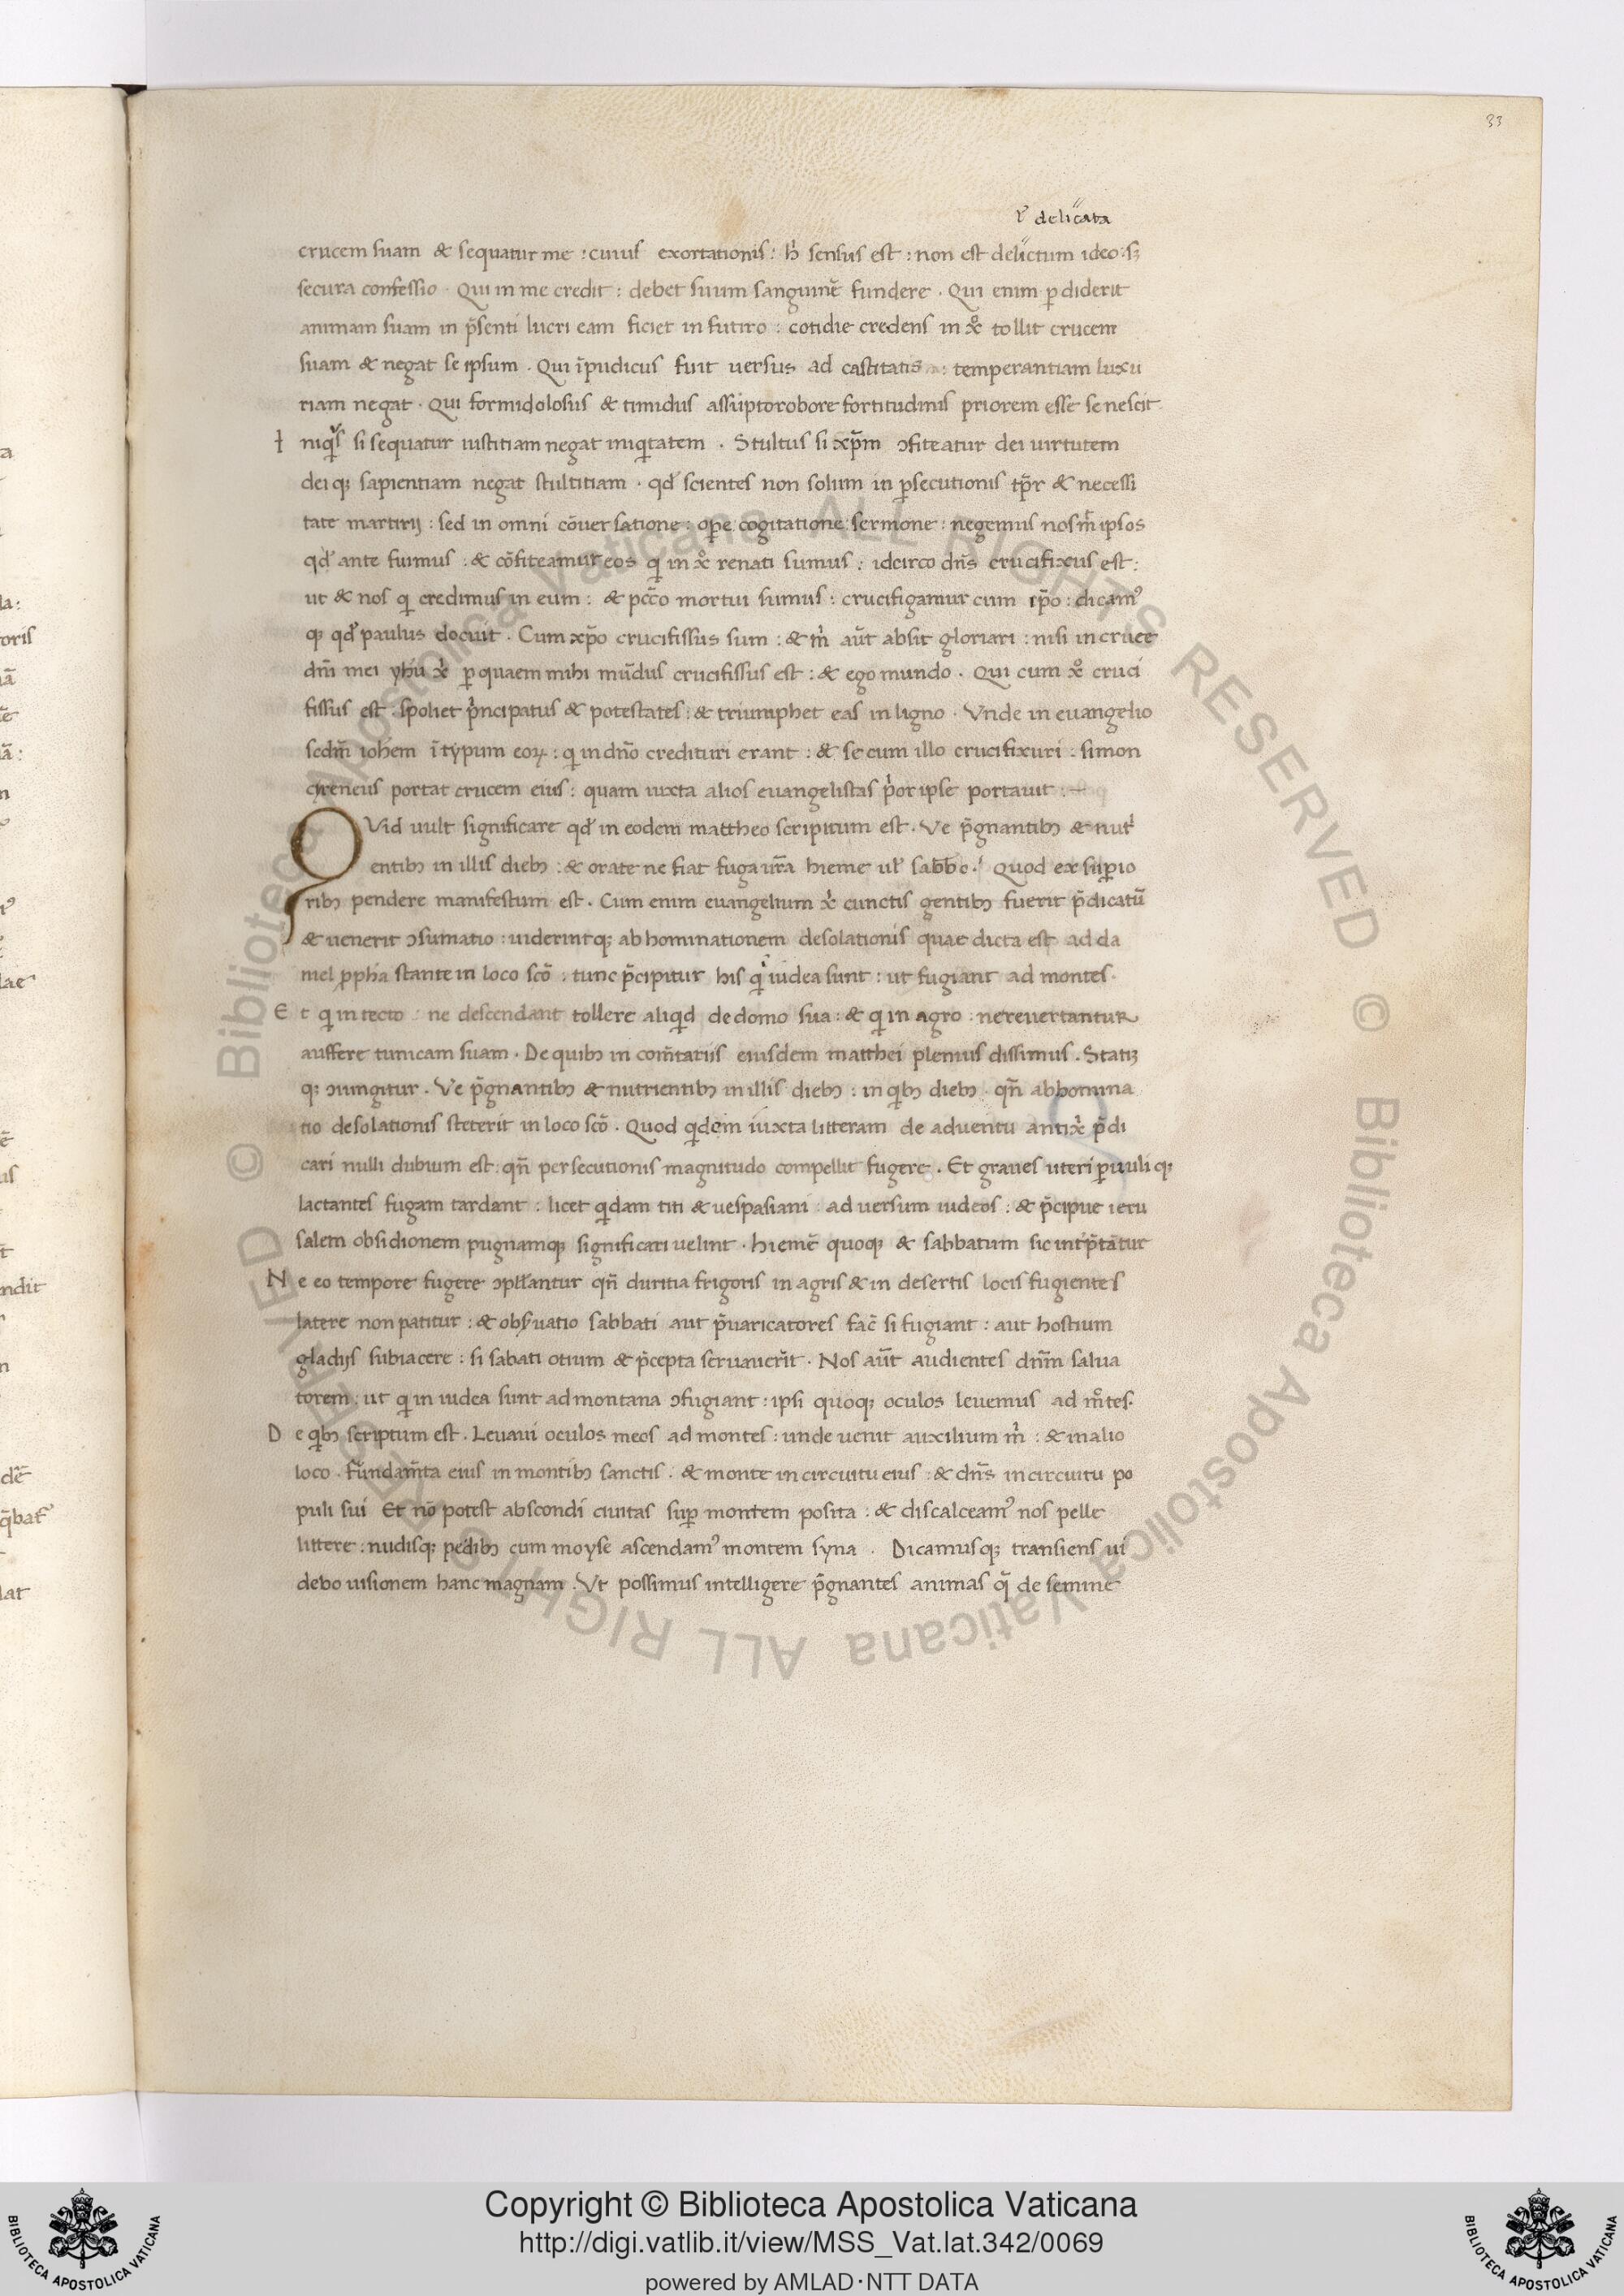 33
delicata
crucem suam & sequatur me : cuius exortationis : h̓ sensus est : non est delictum ideo : sʒ
secura confessio . Qui in me credit : debet suum sanguinē fundere . Qui enim p̱diderit
animam suam in p̄senti lucri eam ficiet in futuro : cotidie credens in xͦ tollit crucem
suam & negat se ipsum . Qui īpudicus fuit versus ad castitatis : temperantiam luxu
riam negat . Qui formidolosus & timidus assūptorobore fortitudinis priorem esse se nescit
I niqͥs si sequatur iustitiam negat iniqͥtatem . Stultus si xp̄m ɔfiteatur dei virtutem
dei qꝫ sapientiam negat stultitiam . qđ scientes non solum in p̱secutionis tp̄r & necessi
tate martirij : sed in omni cōversatione : ope cogitatione sermone : negemus nosm̄ ipsos
qđ ante fuimus : & cōfiteamur eos qͥ in xͦ renati sumus : idcirco dn̄s crucifixus est :
ut & nos qͥ credimus in eum : & pcc̄o mortui sumus : crucifigamur cum ip̄o : dicamꝰ
qꝫ qđ paulus docuit . Cum xp̄o crucifissus sum : & m̓ aūt absit gloriari : nisi in cruce
dn̄i mei yhū xͥ p̱ quaem mihi mūdus crucifissus est : & ego mundo . Qui cum xͦ cruci
fissus est spoliet pͥncipatus & potestates : & triumphet eas in ligno . Vnde in euangelio
sedm̄ iohem ī typum eoꝝ : qͥ in dn̄o credituri erant : & se cum illo crucifixuri : simon
cyreneus portat crucem eius : quam iuxta alios euangelistas pͥor ipse portauit :
Quid uult significare qđ in eodem mattheo scripitum est . Ve p̄gnantibꝫ & nutͥ
entibꝫ in illis diebꝫ : & orate ne fiat fuga ur̄a hieme ul̓ sabb̄o . Quod ex sup̱io
ribꝫ pendere manifestum est . Cum enim euangelium xͥ cunctis gentibꝫ fuerit p̄dicatū
& uenerit ɔsumatio : uiderintqꝫ abhominationem desolationis quae dicta est ad da
niel p̱pha stante in loco sc̄o : tunc p̄cipitur his qͥ iudea sunt : ut fugiant ad montes .
E t qͥ in tecto : ne descendant tollere aliqͥd de domo sua : & qͥ in agro : ne reuertantur
auffere tunicam suam . De quibꝫ in com̄tariis eiusdem matthei plenius dissimus . Statiꝫ
qꝫ ɔiungitur . Ve p̄gnantibꝫ & nutrientibꝫ in illis diebꝫ : in qͥbꝫ diebꝫ . qn̄ abhomina
tio desolationis steterit in loco sc̄o . Quod qͥdem iuxta litteram de aduentu antixͥ p̄di
cari nulli dubium est : qn̄ persecutionis magnitudo compellit fugere . Et graues uteri p̱uuli qꝫ
lactantes fugam tardant : licet qͥdam titi & uespasiani : ad uersum iudeos : & p̄cipue ieru
salem obsidionem pugnamqꝫ significari uelint . hiemē quoqꝫ & sabbatum sic intp̄tātur
N e eo tempore fugere ɔpll̄antur qn̄ duritia frigoris in agris & in desertis locis fugientes
latere non patitur : & obs̓uatio sabbati aut p̄uaricatores fac̄ si fugiant : aut hostium
gladijs subiacere : si sabati otium & p̄cepta seruauerīt . Nos aūt audientes dn̄m salua
torem : ut qͥ in iudea sunt ad montana ɔfugiant : ipsi quoqꝫ oculos leuemus ad mͦtes .
D e qͥbꝫ scriptum est . Leuaui oculos meos ad montes : unde uenit auxilium m̓ : & in alio
loco . fundam̄ta eius in montibꝫ sanctis . & monte in circuitu eius : & dn̄s in circuitu po
puli sui Et nō potest abscondi ciuitas sup̱ montem posita : & discalceamꝰ nos pelle
littere : nudisqꝫ pedibꝫ cum moyse ascendamꝰ montem syna . Dicamusqꝫ transiens ui
debo uisionem hanc magnam . Ut possimus intelligere p̄gnantes animas q̄ de semine
Copyright © Biblioteca Apostolica Vaticana
http://digi.vatlib.it/view/MSS_Vat.lat.342/0069
powered by AMLAD·NTT DATA
BIBLIOTECA APOSTOLICA VATICANA
BIBLIOTECA APOSTOLICA VATICANA
© Biblioteca Apostolica Vaticana ALL RIGHTS RESERVED © Biblioteca Apostolica Vaticana ALL RIGHTS RESERVED